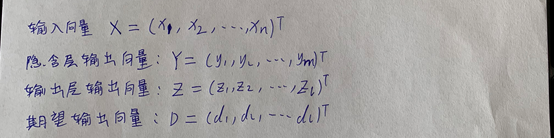 输入向量 X = (x₁, x₂, ⋯, xₙ)ᵀ
隐含层输出向量: Y = (y₁, y₂, ⋯, yₘ)ᵀ
输出层输出向量: Z = (z₁, z₂, ⋯, zₗ)ᵀ
期望输出向量: D = (d₁, d₂, ⋯ dₗ)ᵀ